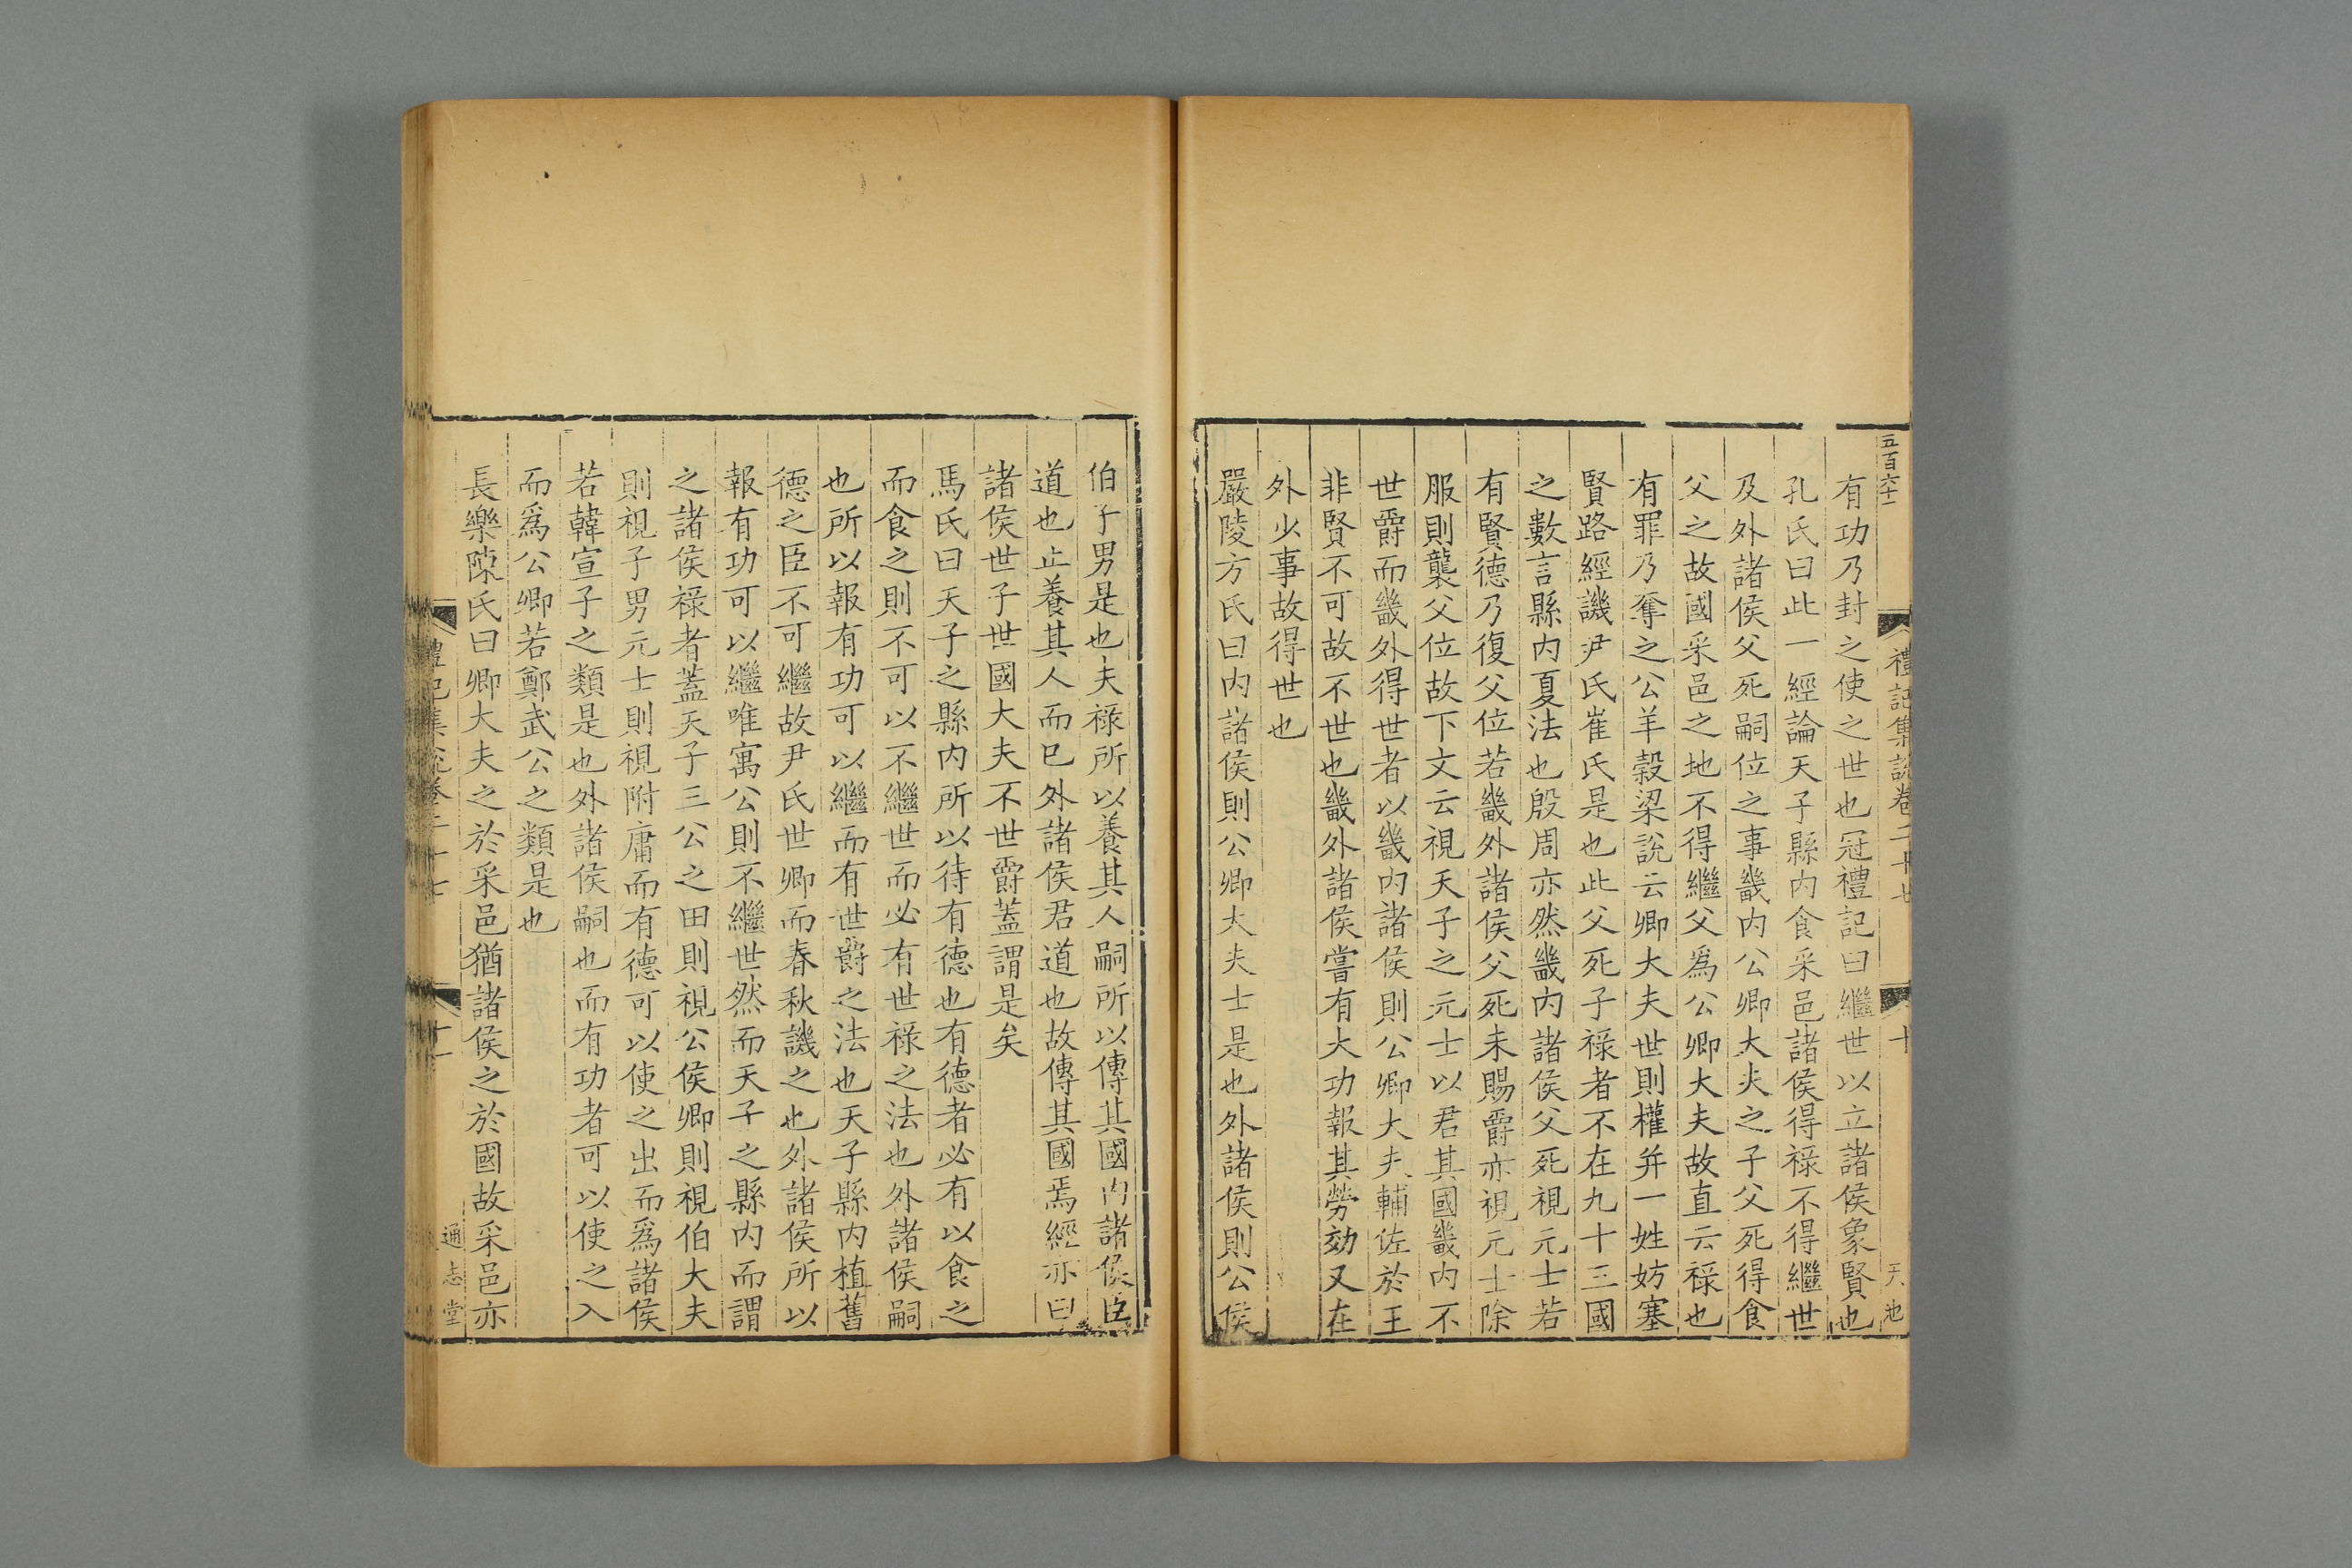 五百六十一
禮記集說卷二十七
十
天池
有功乃封之使之世也冠禮記曰繼世以立諸侯象賢也
孔氏曰此一經論天子縣内食采邑諸侯得祿不得繼世
及外諸侯父死嗣位之事畿内公卿大夫之子父死得食
父之故國采邑之地不得繼父爲公卿大夫故直云祿也
有罪乃奪之公羊穀梁說云卿大夫世則權并一姓妨塞
賢路經譏尹氏崔氏是也此父死子祿者不在九十三國
之數言縣内夏法也殷周亦然畿内諸侯父死視元士若
有賢德乃復父位若畿外諸侯父死未賜爵亦視元士除
服則襲父位故下文云視天子之元士以君其國畿内不
世爵而畿外得世者以畿内諸侯則公卿大夫輔佐於王
非賢不可故不世也畿外諸侯嘗有大功報其勞効又在
外少事故得世也
嚴陵方氏曰内諸侯則公卿大夫士是也外諸侯則公侯
伯子男是也夫祿所以養其人嗣所以傳其國内諸侯臣
道也止養其人而已外諸侯君道也故傳其國焉經亦曰
諸侯世子世國大夫不世爵蓋謂是矣
馬氏曰天子之縣内所以待有德也有德者必有以食之
而食之則不可以不繼世而必有世祿之法也外諸侯嗣
也所以報有功可以繼而有世爵之法也天子縣内植舊
德之臣不可繼故尹氏世卿而春秋譏之也外諸侯所以
報有功可以繼唯寓公則不繼世然而天子之縣内而謂
之諸侯祿者蓋天子三公之田則視公侯卿則視伯大夫
則視子男元士則視附庸而有德可以使之出而爲諸侯
若韓宣子之類是也外諸侯嗣也而有功者可以使之入
而爲公卿若鄭武公之類是也
長樂陳氏曰卿大夫之於采邑猶諸侯之於國故采邑亦
禮記集說卷二十七
十一
通志堂